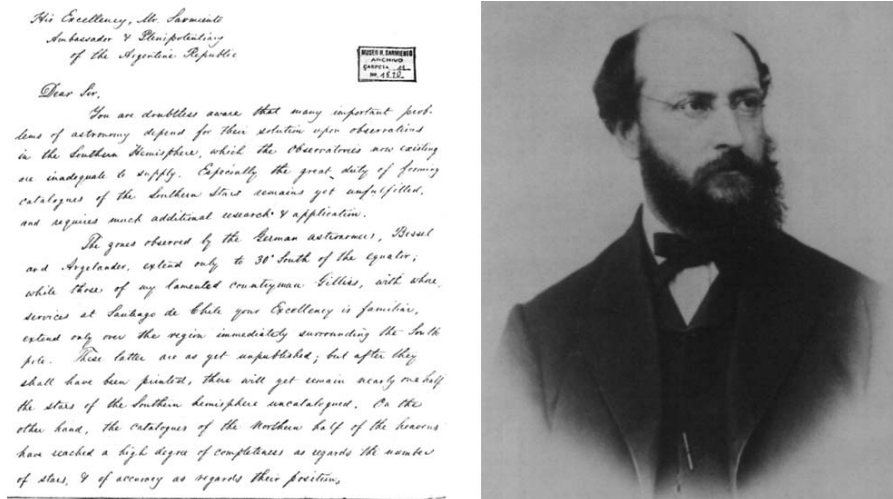 His Excellency, Mr. Sarmiento
Ambassador & Plenipotentiary
of the Argentine Republic
MUSEO H. SARMIENTO
ARCHIVO
CARPETA 11
No.
Dear Sir,
You are doubtless aware that many important prob-
lems of astronomy depend for their solution upon observations
in the Southern Hemisphere, which the Observatories now existing
are inadequate to supply. Especially the great duty of forming
catalogues of the Southern Stars remains yet unfulfilled,
and requires much additional research & application.
The zones observed by the German astronomers, Bessel
and Argelander, extend only to 30° South of the equator;
while those of my lamented countryman Gilliss, with whose
services at Santiago de Chile your Excellency is familiar,
extend only over the region immediately surrounding the South
pole. These latter are as yet unpublished; but after they
shall have been printed, there will yet remain nearly one half
the stars of the Southern hemisphere uncatalogued. On the
other hand, the catalogues of the Northern half of the heavens
have reached a high degree of completeness as regards the number
of stars, & of accuracy as regards their position,